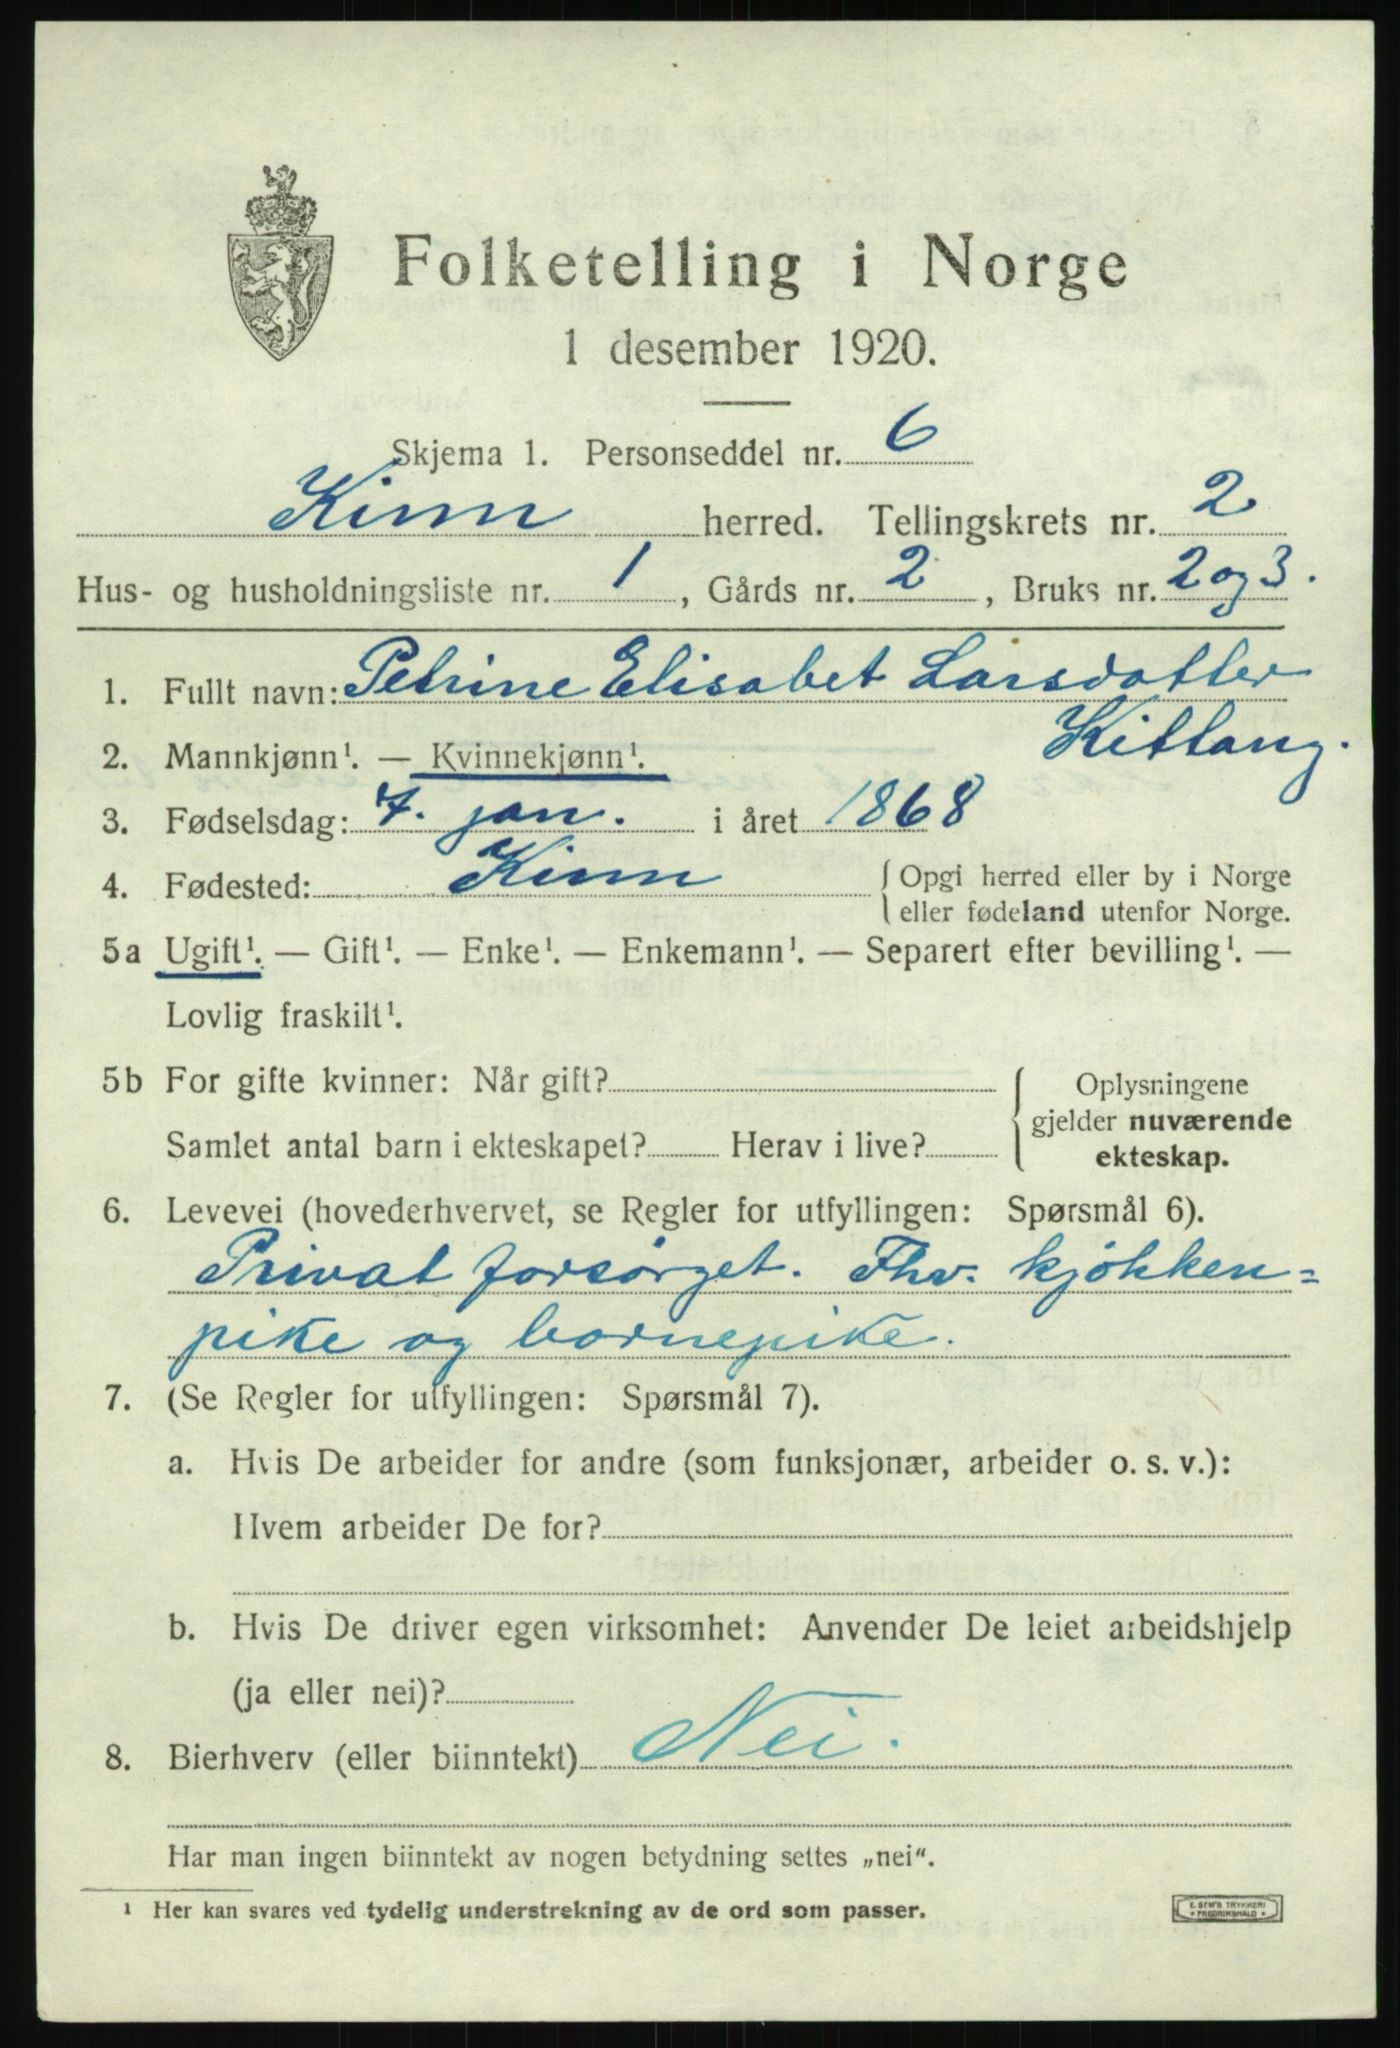 Folketelling i Norge
1 desember 1920.
Skjema 1. Personseddel nr. 6
Kinn herred. Tellingskrets nr. 2
Hus- og husholdningsliste nr. 1, Gårds nr. 2, Bruks nr. 2 og 3.
1. Fullt navn: Petrine Elisabet Larsdatter
Kitlang.
2. Mannkjønn¹. — Kvinnekjønn¹.
3. Fødselsdag: 7. jan. i året 1868
4. Fødested: Kinn { Opgi herred eller by i Norge
eller fødeland utenfor Norge.
5a Ugift¹. — Gift¹. — Enke¹. — Enkemann¹. — Separert efter bevilling¹. —
Lovlig fraskilt¹.
5b For gifte kvinner: Når gift? Oplysningene
gjelder nuværende
Samlet antal barn i ekteskapet? Herav i live? ekteskap.
6. Levevei (hovederhvervet, se Regler for utfyllingen: Spørsmål 6).
Privat forsørget. Fhv. kjøkken=
pike og barnepike.
7. (Se Regler for utfyllingen: Spørsmål 7).
a. Hvis De arbeider for andre (som funksjonær, arbeider o. s. v.):
Hvem arbeider De for?
b. Hvis De driver egen virksomhet: Anvender De leiet arbeidshjelp
(ja eller nei)?
8. Bierhverv (eller biinntekt) Nei.
Har man ingen biinntekt av nogen betydning settes „nei".
¹ Her kan svares ved tydelig understrekning av de ord som passer.
E. SEM'S TRYKKERI
* FREDRIKSHALD *